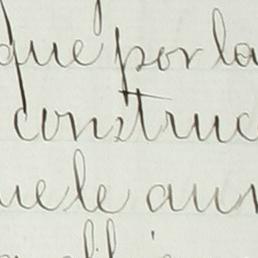 que por la
construc
uele aun